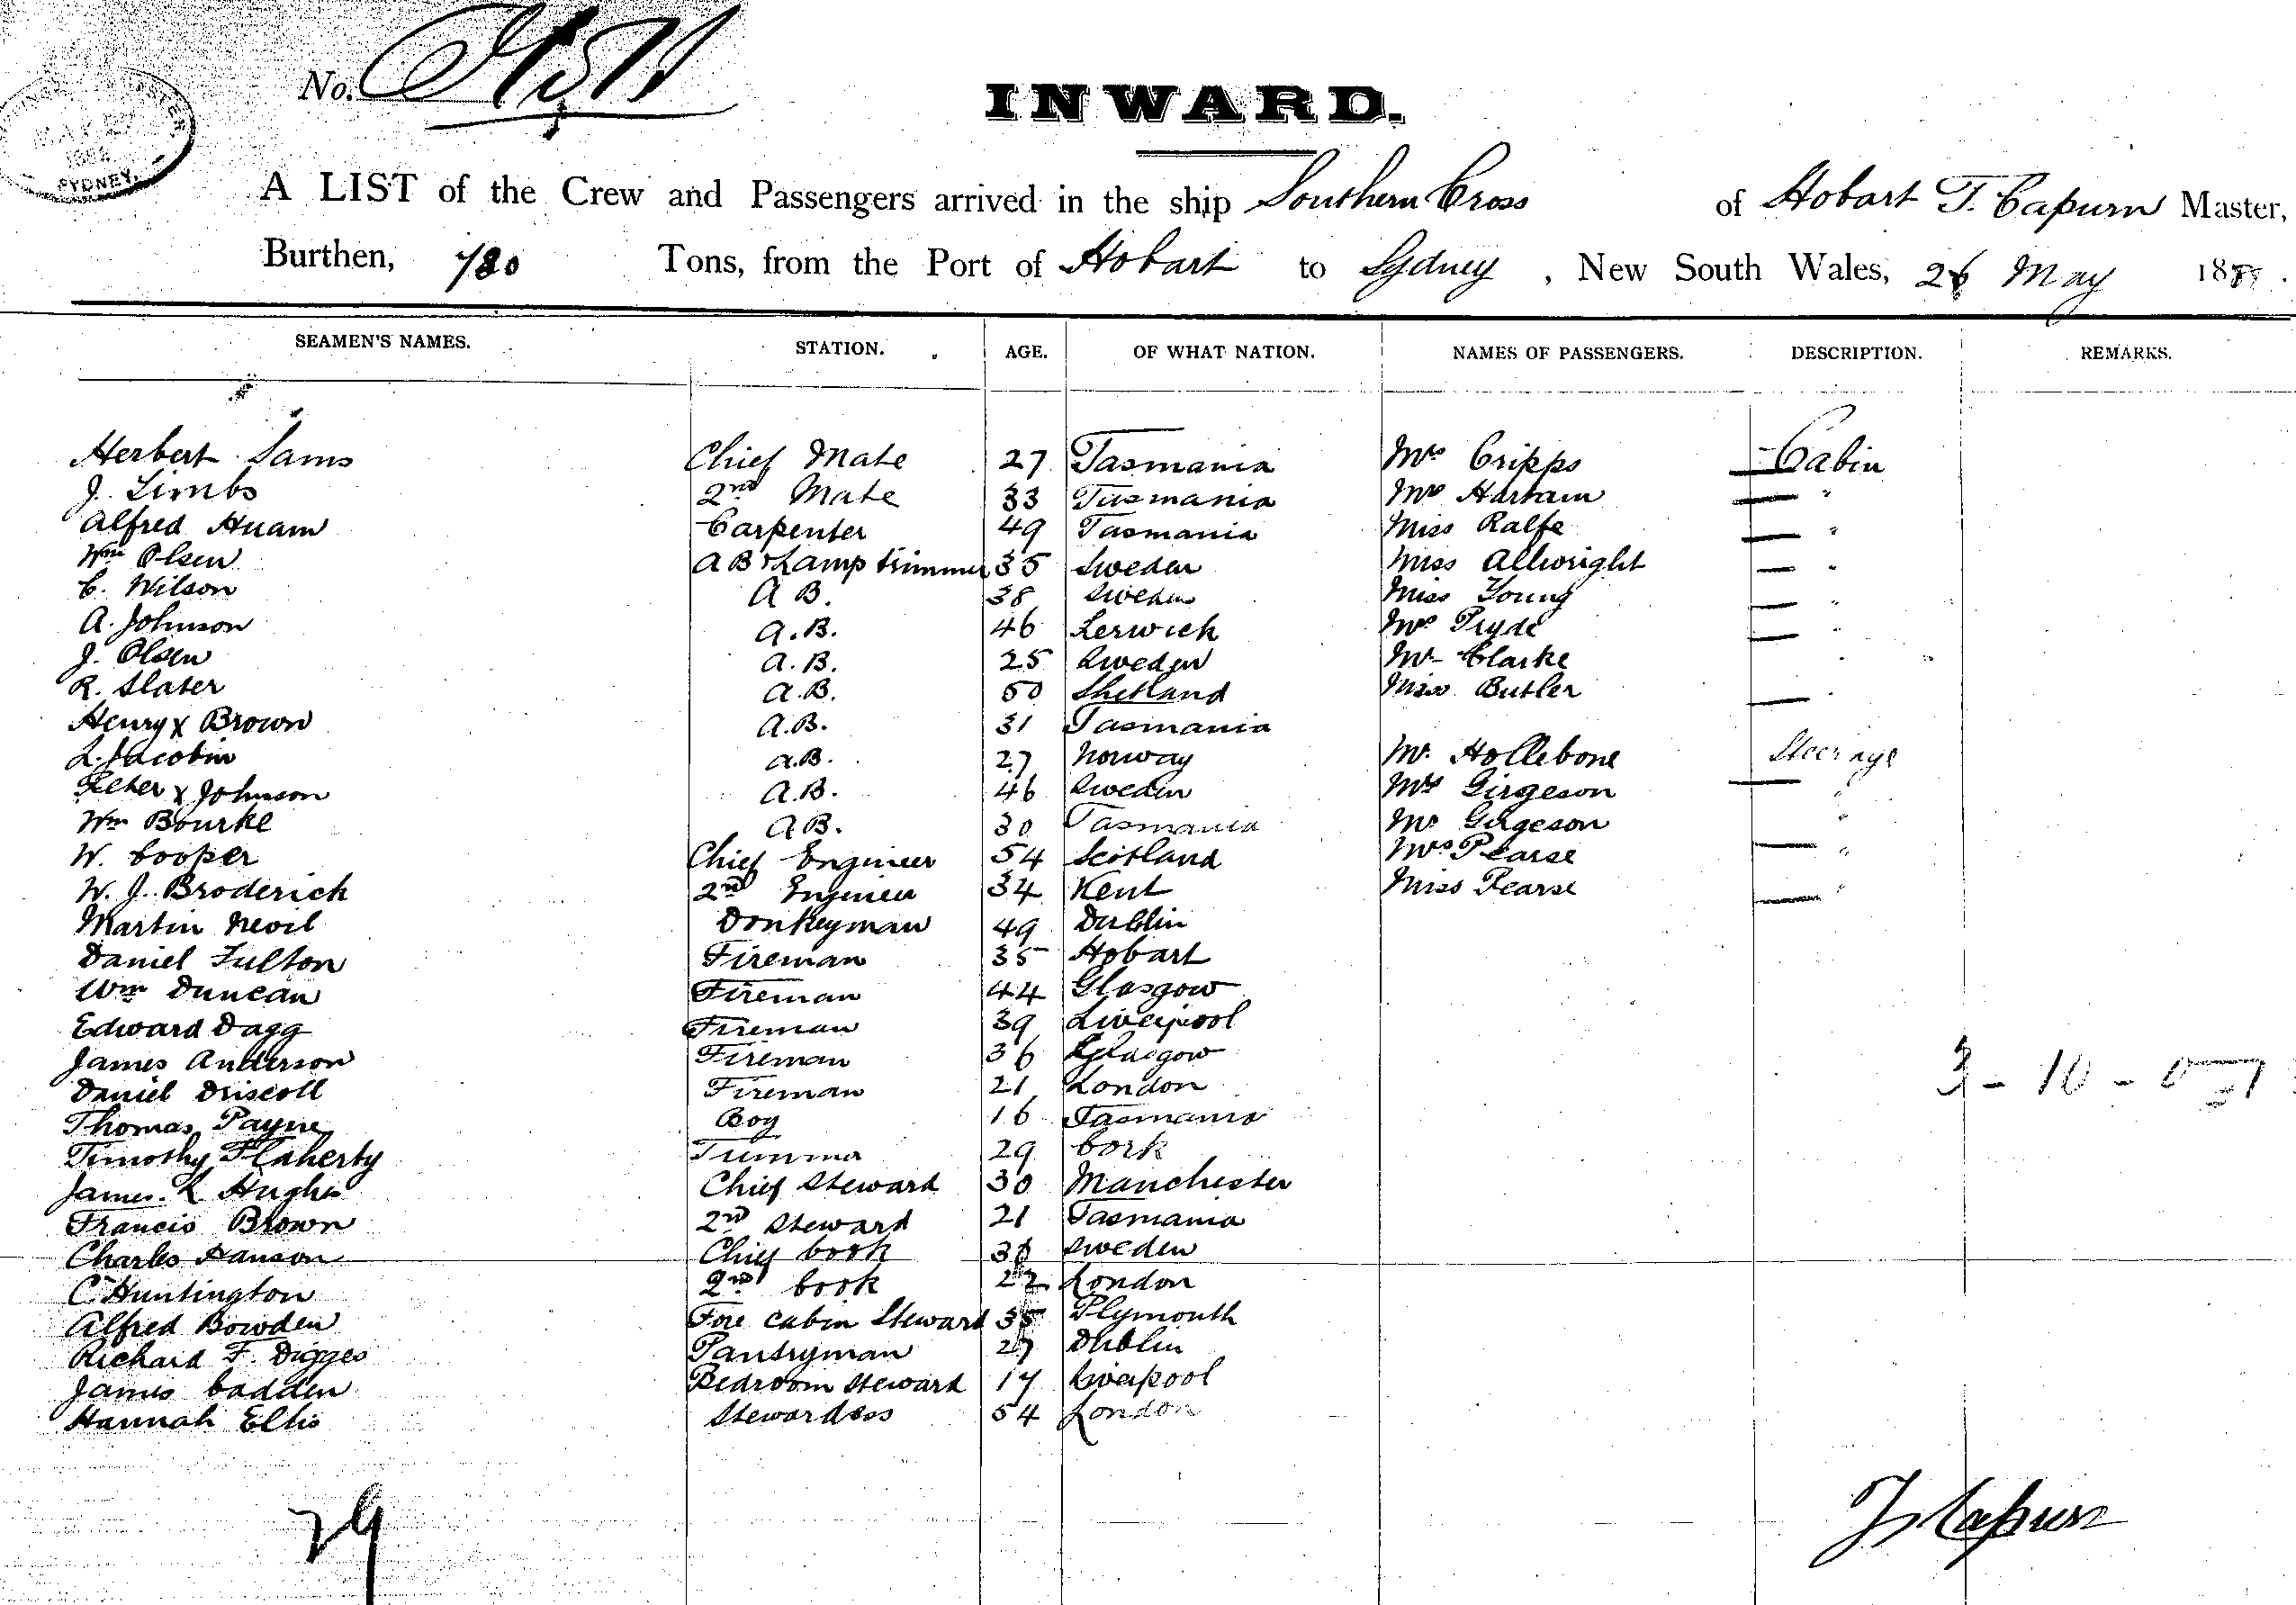 No.
MAY 27
SYDNEY.
INWARD.
A LIST of the Crew and Passengers arrived in the ship Southern Cross of Hobart T. Capurn Master,
Burthen, 780 Tons, from the Port of Hobart to Sydney, New South Wales, 26 May 188
SEAMEN'S NAMES. STATION. AGE. OF WHAT NATION. NAMES OF PASSENGERS. DESCRIPTION. REMARKS.
Herbert Sams Chief Mate 27 Tasmania Mrs Cripps Cabin
J. Limbs 2nd Mate 33 Tasmania Mrs Harbam "
Alfred Huam Carpenter 49 Tasmania Miss Ralfe "
Wm Olsen A B & Lamp trimmer 35 Sweden Miss Allwright "
C. Wilson A B. 38 Sweden Miss Young "
A. Johnson A.B. 46 Lerwick Mrs Pryde "
J. Olsen A.B. 25 Sweden Mr Clarke "
R. Slater A.B. 50 Shetland Miss Butler "
Henry x Brown A.B. 31 Tasmania
L. Jacobin A.B. 27 Norway Mr. Hollebone Steerage
Peter x Johnson A.B. 46 Sweden Mrs Girgeson "
Wm Bourke A B. 30 Tasmania Mr Girgeson "
W. Cooper Chief Engineer 54 Scotland Mrs Pearse "
W. J. Broderick 2nd Engineer 34 Kent Miss Pearse "
Martin Nevil Donkeyman 49 Dublin
Daniel Fulton Fireman 35 Hobart
Wm Duncan Fireman 44 Glasgow
Edward Dagg Fireman 39 Liverpool
James Anderson Fireman 36 Glasgow
Daniel Driscoll Fireman 21 London 3 - 10 - 0
Thomas Payne Boy 16 Tasmania
Timothy Flaherty Trimmer 29 Cork
James. L Hughes Chief Steward 30 Manchester
Francis Brown 2nd Steward 21 Tasmania
Charles Hanson Chief Cook 38 Sweden
C. Huntington 2nd Cook 22 London
Alfred Bowden Fore Cabin Steward 35 Plymouth
Richard F. Digges Pantryman 27 Dublin
James Cadden Bedroom Steward 17 Liverpool
Hannah Ellis Stewardess 54 London
29
T Capurn